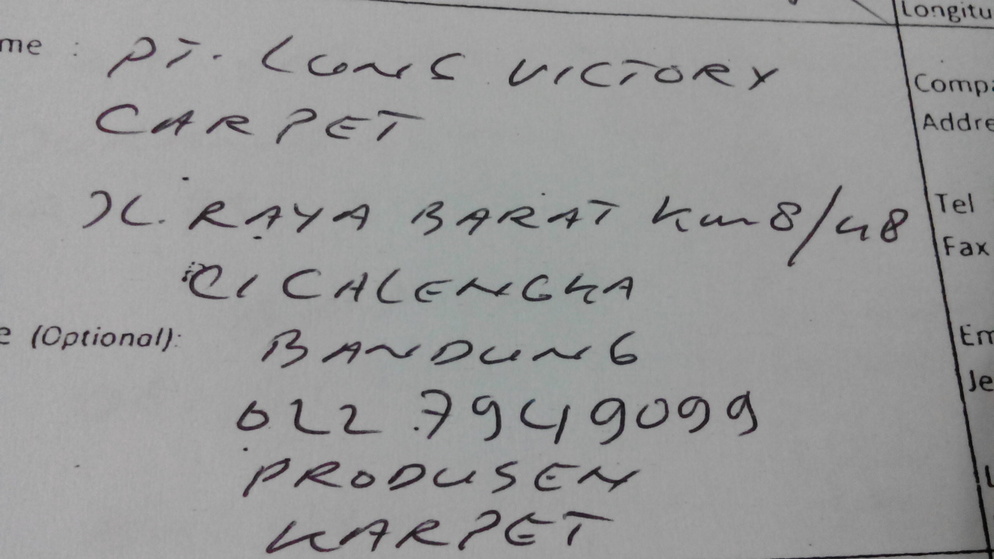 Longitu
me : PT. LONG VICTORY
CARPET
Compa
Addre
JL. RAYA BARAT Km 8/48
Tel
Fax
CICALENGKA
e (Optional): BANDUNG
Em
Je
022 7949099
PRODUSEN
KARPET